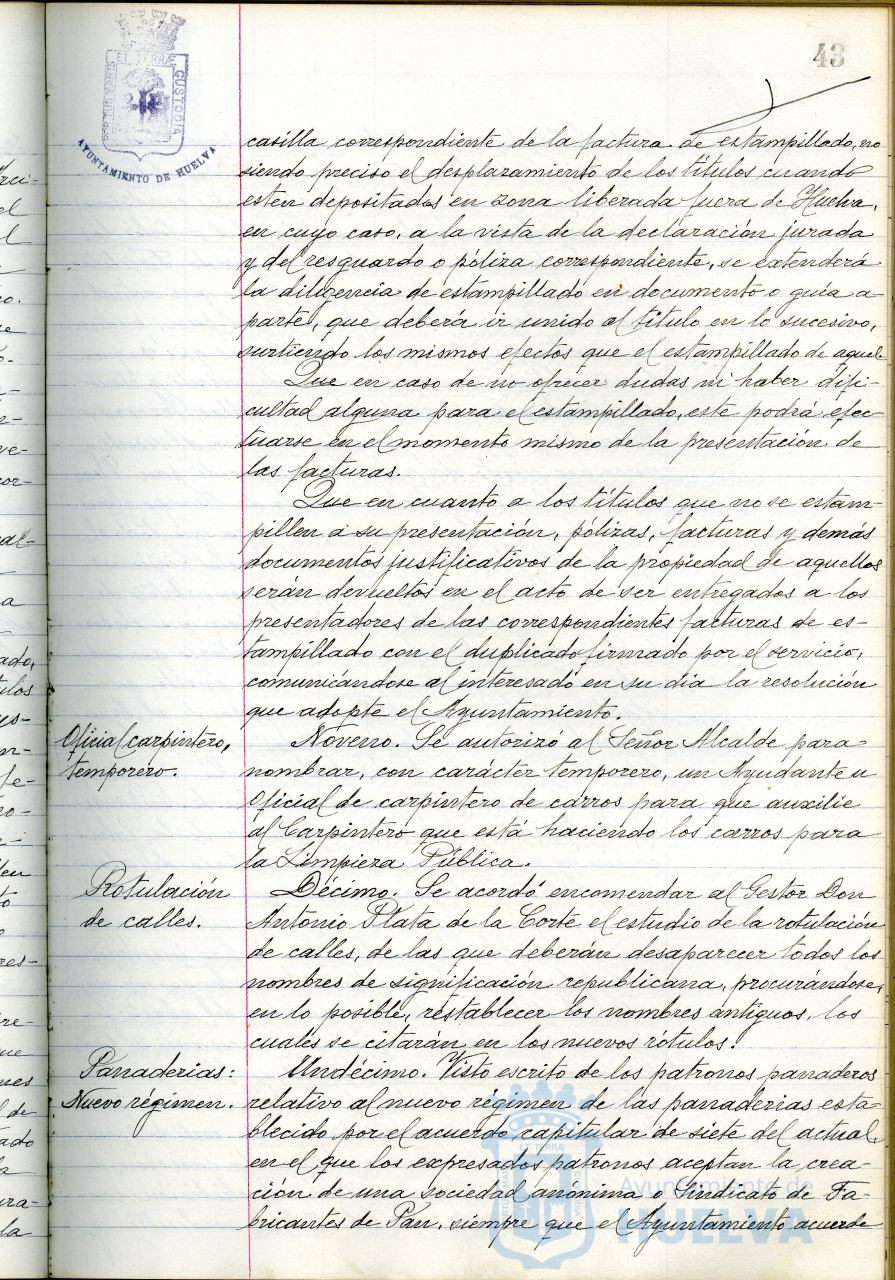 43
EL TERRÆ
CUSTODIA
AYUNTAMIENTO DE HUELVA
casilla correspondiente de la factura de estampillado, no
siendo preciso el desplazamiento de los títulos cuando
esten depositados en zona liberada fuera de Huelva,
en cuyo caso, a la vista de la declaración jurada
y del resguardo o póliza correspondiente, se extenderá
la diligencia de estampillado en documento o guía a-
parte, que deberá ir unido al título en lo sucesivo,
surtiendo los mismos efectos que el estampillado de aquel.
Que en caso de no ofrecer dudas ni haber difi-
cultad alguna para el estampillado, este podrá efec-
tuarse en el momento mismo de la presentación de
las facturas.
Que en cuanto a los títulos que no se estam-
pillen a su presentación, pólizas, facturas y demás
documentos justificativos de la propiedad de aquellos
serán devueltos en el acto de ser entregados a los
presentadores de las correspondientes facturas de es-
tampillado con el duplicado firmado por el servicio,
comunicándose al interesado en su dia la resolución
que adopte el Ayuntamiento.
Oficial carpintero,
temporero.
Noveno. Se autorizó al Señor Alcalde para
nombrar, con carácter temporero, un Ayudante u
Oficial de carpintero de carros para que auxilie
al Carpintero que está haciendo los carros para
la Limpieza Pública.
Rotulación
de calles.
Décimo. Se acordó encomendar al Gestor Don
Antonio Plata de la Corte el estudio de la rotulación
de calles, de las que deberán desaparecer todos los
nombres de significación republicana, procurándose,
en lo posible, restablecer los nombres antiguos, los
cuales se citarán en los nuevos rótulos.
Panaderias:
Nuevo régimen.
Undécimo. Visto escrito de los patronos panaderos
relativo al nuevo régimen de las panaderias esta-
blecido por el acuerdo capitular de siete del actual,
en el que los expresados patronos aceptan la crea-
ción de una sociedad anónima o Sindicato de Fa-
bricantes de Pan, siempre que el Ayuntamiento acuerde
Ayuntamiento de
HUELVA